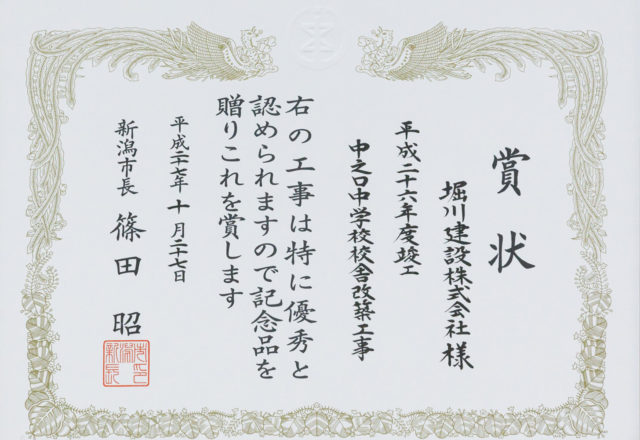 賞状
堀川建設株式会社 様
平成二十六年度竣工
中之口中学校校舎改築工事
右の工事は特に優秀と
認められますので記念品を
贈りこれを賞します
平成二十七年十月二十七日
新潟市長 篠田 昭